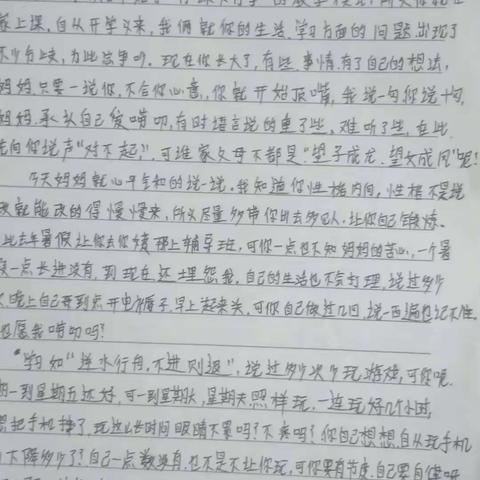 家上课,自从开学以来,我俩就你的生活、学习方面的问题,出现了
不少分歧,为此总争吵。现在你长大了,有些事情有了自己的想法,
妈妈只要一说你,不合你心意,你就开始顶嘴,我说一句你说十句,
妈妈承认自己爱唠叨,有时语言说的重了些,难听了些,在此
先向你说声“对不起”,可谁家父母不都是“望子成龙、望女成凤”呢!
今天妈妈就心平气和的说一说,我知道你性格内向,性格不是说
改就能改的得慢慢来,所以尽量多带你出去多见人,让你自己锻炼。
比去年暑假让你去你 那上辅导班,可你一点也不知妈妈的苦心,一个暑
一点长进没有,到现在还埋怨我,自己的生活也不会打理,说过多少
晚上自己开到点开电褥子,早上起来关,可你自己做过几回,说一百遍也记不住,
愿我唠叨吗?
“学习如“逆水行舟,不进则退”,说过多少次少玩游戏,可你呢,
期一到星期五还好,可一到星期六、星期天照样玩,一连玩好几个小时,
把手机摔了,玩这么长时间眼睛不累吗?不疼吗?你自己想想,自从玩手机
下降多少了?自己一点数没有,也不是不让你玩,可你要有节度,自己要自律呀